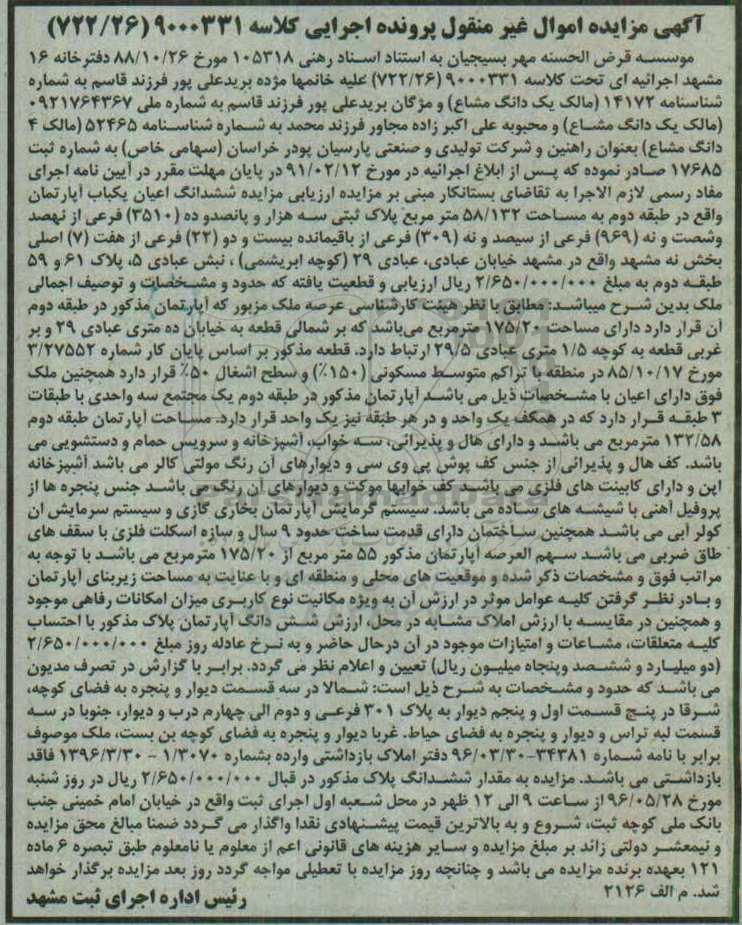 آگهی مزایده اموال غیر منقول پرونده اجرایی کلاسه ۹۰۰۰۳۳۱ (۷۲۲/۲۶)
موسسه قرض الحسنه مهر بسیجیان به استناد اسناد رهنی ۱۰۵۳۱۸ مورخ ۸۸/۱۰/۲۶ دفترخانه ۱۶
مشهد اجرائیه ای تحت کلاسه ۹۰۰۰۳۳۱ (۷۲۲/۲۶) علیه خانمها مژده بریدعلی پور فرزند قاسم به شماره
شناسنامه ۱۴۱۷۲ (مالک یک دانگ مشاع) و مژگان بریدعلی پور فرزند قاسم به شماره ملی ۰۹۲۱۷۶۴۳۶۷
(مالک یک دانگ مشاع) و محبوبه علی اکبر زاده مجاور فرزند محمد به شماره شناسنامه ۵۲۴۶۵ (مالک ۴
دانگ مشاع) بعنوان راهنین و شرکت تولیدی و صنعتی پارسیان پودر خراسان (سهامی خاص) به شماره ثبت
۱۷۶۸۵ صادر نموده که پس از ابلاغ اجرائیه در مورخ ۹۱/۰۲/۱۲ در پایان مهلت مقرر در آیین نامه اجرای
مفاد رسمی لازم الاجرا به تقاضای بستانکار مبنی بر مزایده ارزیابی مزایده ششدانگ اعیان یکباب آپارتمان
واقع در طبقه دوم به مساحت ۵۸/۱۳۲ متر مربع پلاک ثبتی سه هزار و پانصدو ده (۳۵۱۰) فرعی از نهصد
وشصت و نه (۹۶۹) فرعی از سیصد و نه (۳۰۹) فرعی از باقیمانده بیست و دو (۲۲) فرعی از هفت (۷) اصلی
بخش نه مشهد واقع در مشهد خیابان عبادی، عبادی ۲۹ (کوچه ابریشمی) ، نبش عبادی ۵، پلاک ۶۱ و ۵۹
طبقه دوم به مبلغ ۲/۶۵۰/۰۰۰/۰۰۰ ریال ارزیابی و قطعیت یافته که حدود و مشخصات و توصیف اجمالی
ملک بدین شرح میباشد: مطابق با نظر هیئت کارشناسی عرصه ملک مزبور که آپارتمان مذکور در طبقه دوم
آن قرار دارد دارای مساحت ۱۷۵/۲۰ مترمربع می‌باشد که بر شمالی قطعه به خیابان ده متری عبادی ۲۹ و بر
غربی قطعه به کوچه ۱/۵ متری عبادی ۲۹/۵ ارتباط دارد. قطعه مذکور بر اساس پایان کار شماره ۳/۲۷۵۵۲
مورخ ۸۵/۱۰/۱۷ در منطقه با تراکم متوسط مسکونی (۱۵۰٪) و سطح اشغال ۵۰٪ قرار دارد همچنین ملک
فوق دارای اعیان با مشخصات ذیل می باشد آپارتمان مذکور در طبقه دوم یک مجتمع سه واحدی با طبقات
۳ طبقه قرار دارد که در همکف یک واحد و در هر طبقه نیز یک واحد قرار دارد. مساحت آپارتمان طبقه دوم
۱۳۲/۵۸ مترمربع می باشد و دارای هال و پذیرائی، سه خواب، آشپزخانه و سرویس حمام و دستشویی می
باشد. کف هال و پذیرائی از جنس کف پوش پی وی سی و دیوارهای آن رنگ مولتی کالر می باشد آشپزخانه
اپن و دارای کابینت های فلزی می باشد کف خوابها موکت و دیوارهای آن رنگ می باشد جنس پنجره ها از
پروفیل آهنی با شیشه های ساده می باشد. سیستم گرمایش آپارتمان بخاری گازی و سیستم سرمایش ان
کولر آبی می باشد همچنین ساختمان دارای قدمت ساخت حدود ۹ سال و سازه اسکلت فلزی با سقف های
طاق ضربی می باشد سهم العرصه آپارتمان مذکور ۵۵ متر مربع از ۱۷۵/۲۰ مترمربع می باشد با توجه به
مراتب فوق و مشخصات ذکر شده و موقعیت های محلی و منطقه ای و با عنایت به مساحت زیربنای آپارتمان
و بادر نظر گرفتن کلیه عوامل موثر در ارزش آن به ویژه مکانیت نوع کاربری میزان امکانات رفاهی موجود
و همچنین در مقایسه با ارزش املاک مشابه در محل، ارزش شش دانگ آپارتمان پلاک مذکور با احتساب
کلیه متعلقات، مشاعات و امتیازات موجود در آن درحال حاضر و به نرخ عادله روز مبلغ ۲/۶۵۰/۰۰۰/۰۰۰
(دو میلیارد و ششصد وپنجاه میلیون ریال) تعیین و اعلام نظر می گردد. برابر با گزارش در تصرف مدیون
می باشد که حدود و مشخصات به شرح ذیل است: شمالا در سه قسمت دیوار و پنجره به فضای کوچه،
شرقا در پنج قسمت اول و پنجم دیوار به پلاک ۳۰۱ فرعی و دوم الی چهارم درب و دیوار، جنوبا در سه
قسمت لبه تراس و دیوار و پنجره به فضای حیاط. غربا دیوار و پنجره به فضای کوچه بن بست، ملک موصوف
برابر با نامه شماره ۳۴۳۸۱-۹۶/۰۳/۳۰ دفتر املاک بازداشتی وارده بشماره ۱/۳۰۷۰ - ۱۳۹۶/۳/۳۰ فاقد
بازداشتی می باشد. مزایده به مقدار ششدانگ پلاک مذکور در قبال ۲/۶۵۰/۰۰۰/۰۰۰ ریال در روز شنبه
مورخ ۹۶/۰۵/۲۸ از ساعت ۹ الی ۱۲ ظهر در محل شعبه اول اجرای ثبت واقع در خیابان امام خمینی جنب
بانک ملی کوچه ثبت، شروع و به بالاترین قیمت پیشنهادی نقدا واگذار می گردد ضمنا مبالغ محق مزایده
و نیمعشر دولتی زائد بر مبلغ مزایده و سایر هزینه های قانونی اعم از معلوم یا نامعلوم طبق تبصره ۶ ماده
۱۲۱ بعهده برنده مزایده می باشد و چنانچه روز مزایده با تعطیلی مواجه گردد روز بعد مزایده برگذار خواهد
شد. م الف ۲۱۲۶
رئیس اداره اجرای ثبت مشهد